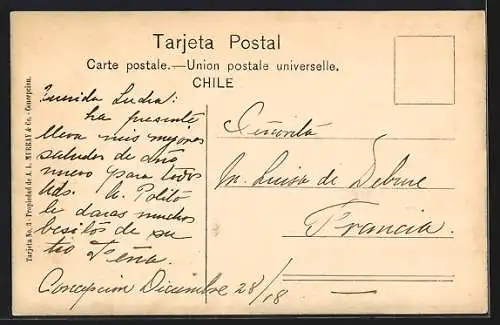 Tarjeta Postal
Carte postale.—Union postale universelle.
CHILE
Tarjeta No. 3 - Propiedad de A. L. MURRAY & Co. - Concepción.
Querida
ha presente
lleva mis mejores
saludos de año
nuevo para todos
Uds. A Polito
le daras muchos
besitos de su
tio Peña.
Concepcion Diciembre 28/18
Señorita
M. Luisa de Debuc
Francia.